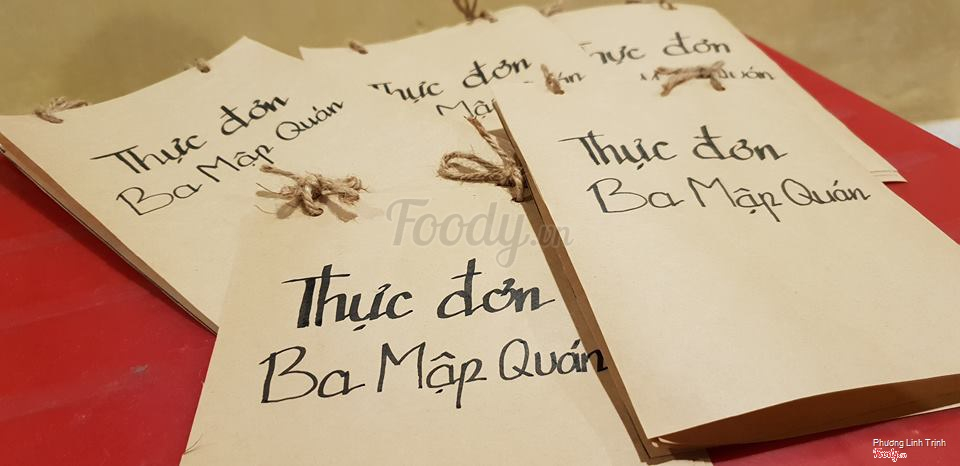 Thực đơn
Ba Mập Quán
Thực đơn
Mập Quán
Thực đơn
Quán
Thực đơn
Ba Mập Quán
Thực đơn
Ba Mập Quán
Foody.vn
Phương Linh Trịnh
Foody.vn